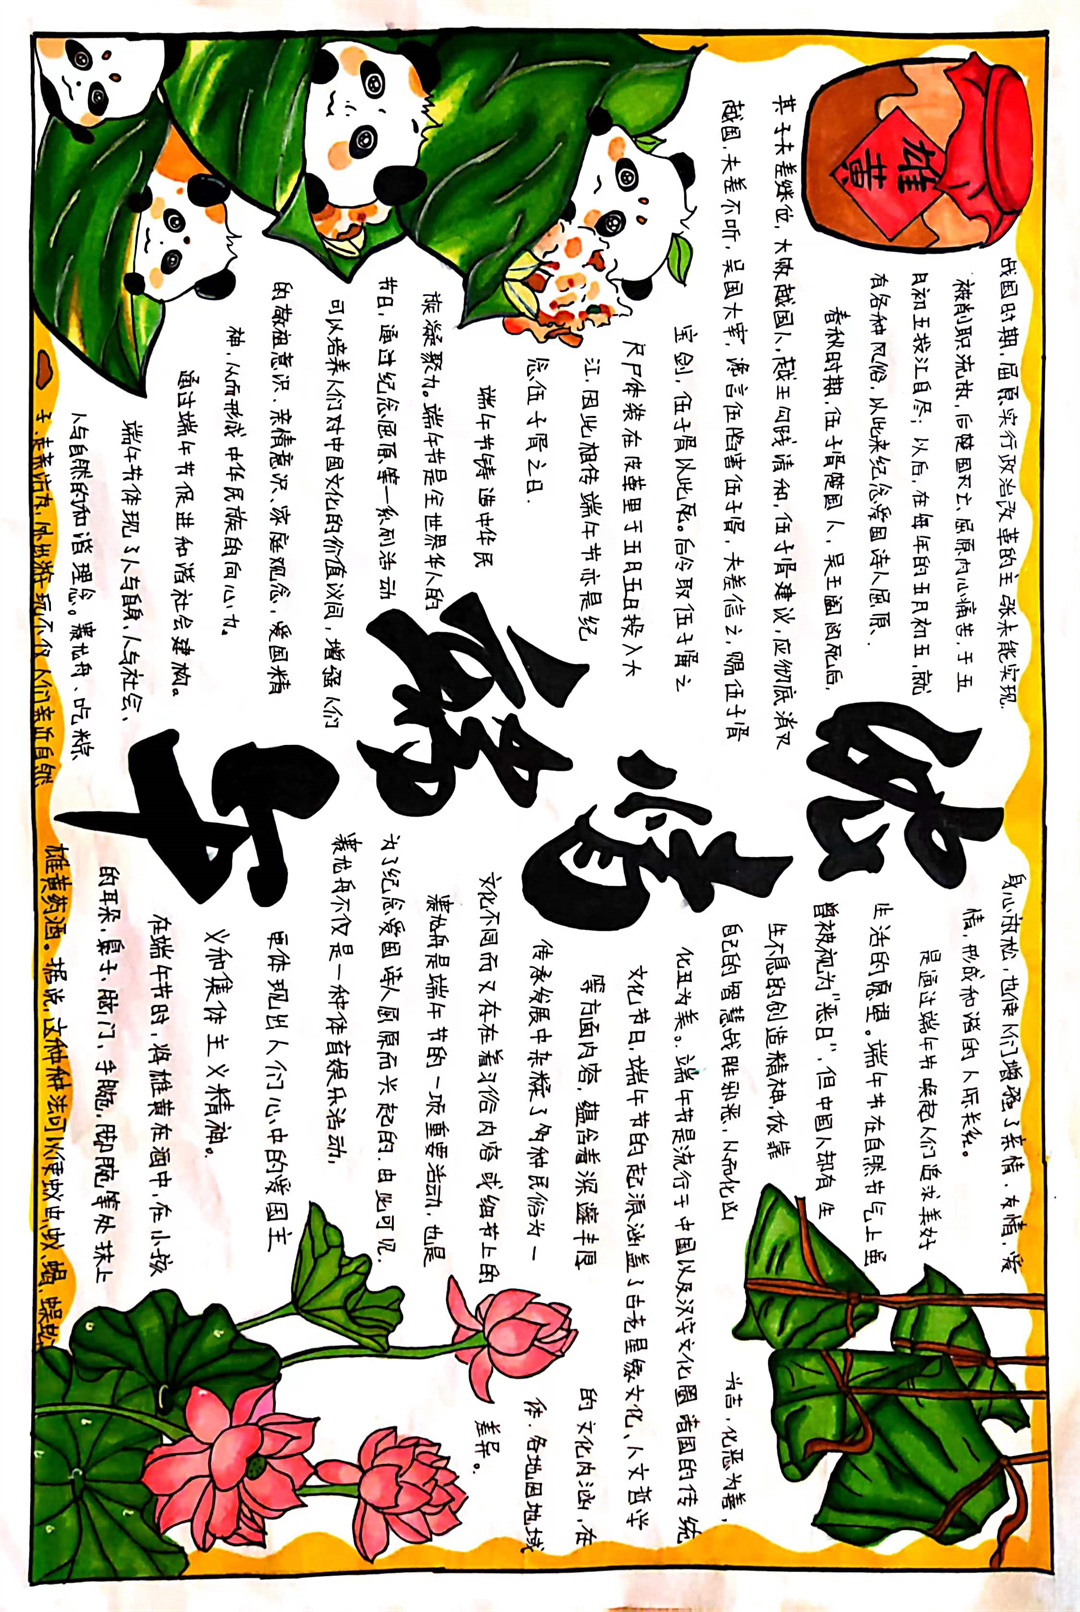 雄黄
战国时期,屈原实行政治改革的主张未能实现,
被削职流放,后楚国灭亡,屈原内心痛苦,于五
月初五投江自尽;以后,在每年的五月初五,就
有各种风俗,以此来纪念爱国诗人屈原、
春秋时期,伍子胥楚国人,吴王阖闾死后,
其子夫差继位,大败越国人,越王勾践请和,伍子胥建议,应彻底消灭
越国,夫差不听,吴国大宰,谗言伍陷害伍子胥,夫差信之,赐伍子胥
宝剑,伍子胥以此死。后令取伍子胥之
尺尸体装在皮革里于五月五日投入大
江,因此相传端午节亦是纪
念伍子胥之日.
端午节铸造中华民
族凝聚力。端午节是全世界华人的
节日,通过纪念屈原等一系列活动
可以培养人们对中国文化的价值认同,增强人们
的敬祖意识、亲情意识、家庭观念,爱国精
神,从而形成中华民族的向心力。
通过端午节促进和谐社会建构。
端午节体现了人与自身、人与社会、
人与自然的和谐理念。赛龙舟、吃粽
浓情
端午
身心放松,也使人们增强了亲情,友情,爱
情,形成和谐的人际关系。
是通过端午节唤起人们追求美好
生活的愿望。端午节在自然节气上虽
曾被视为"恶日",但中国人却有生
生不息的创造精神,依靠
自己的智慧战胜邪恶,从而化凶
为吉,化恶为善,
化丑为美。端午节是流行于中国以及汉字文化圈诸国的传统
文化节日,端午节的起源涵盖了古老星象文化、人文哲学
等方面内容,蕴含着深邃丰厚
的文化内涵,在
传承发展中杂糅了多种民俗为一
体,各地因地域
文化不同而又存在着习俗内容或细节上的
差异。
赛龙舟是端午节的一项重要活动,也是
为了纪念爱国诗人屈原而兴起的.由此可见,
赛龙舟不仅是一种体育娱乐活动,
更体现出人们心中的爱国主
义和集体主义精神。
在端午节时,将雄黄在酒中,在小孩
的耳朵,鼻子、肛门,手腕,脚腕等处抹上
雄黄药酒。据说,这种种法可以使蚊虫,蛇、蝎,